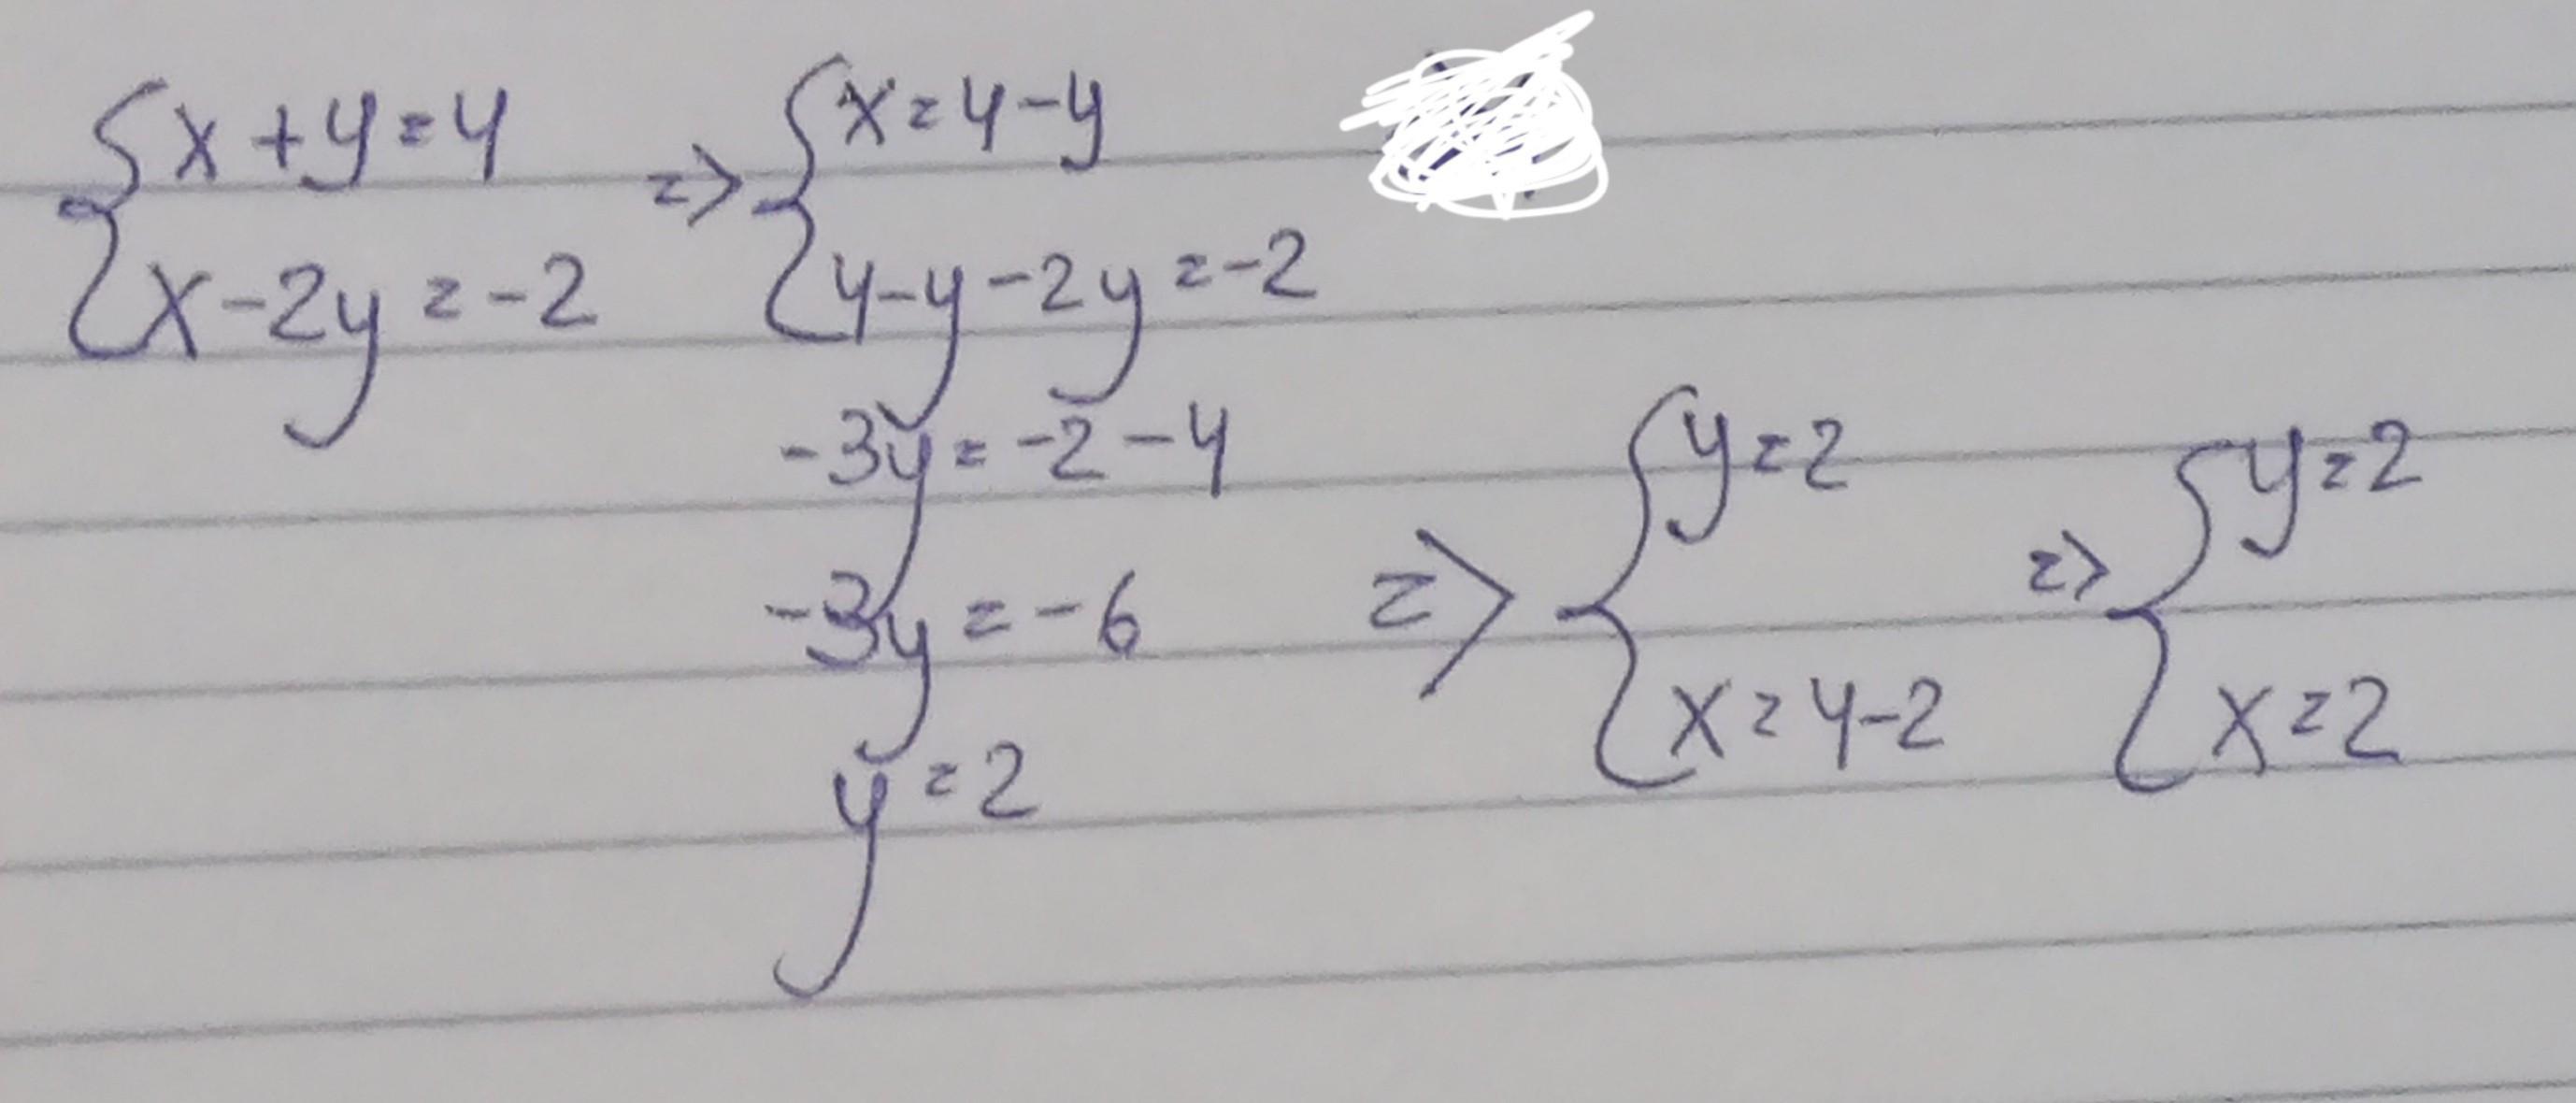 {x+y=4
x-2y=-2
=> {x=4-y
4-y-2y=-2
-3y=-2-4
-3y=-6
y=2
=> {y=2
x=4-2
=> {y=2
x=2